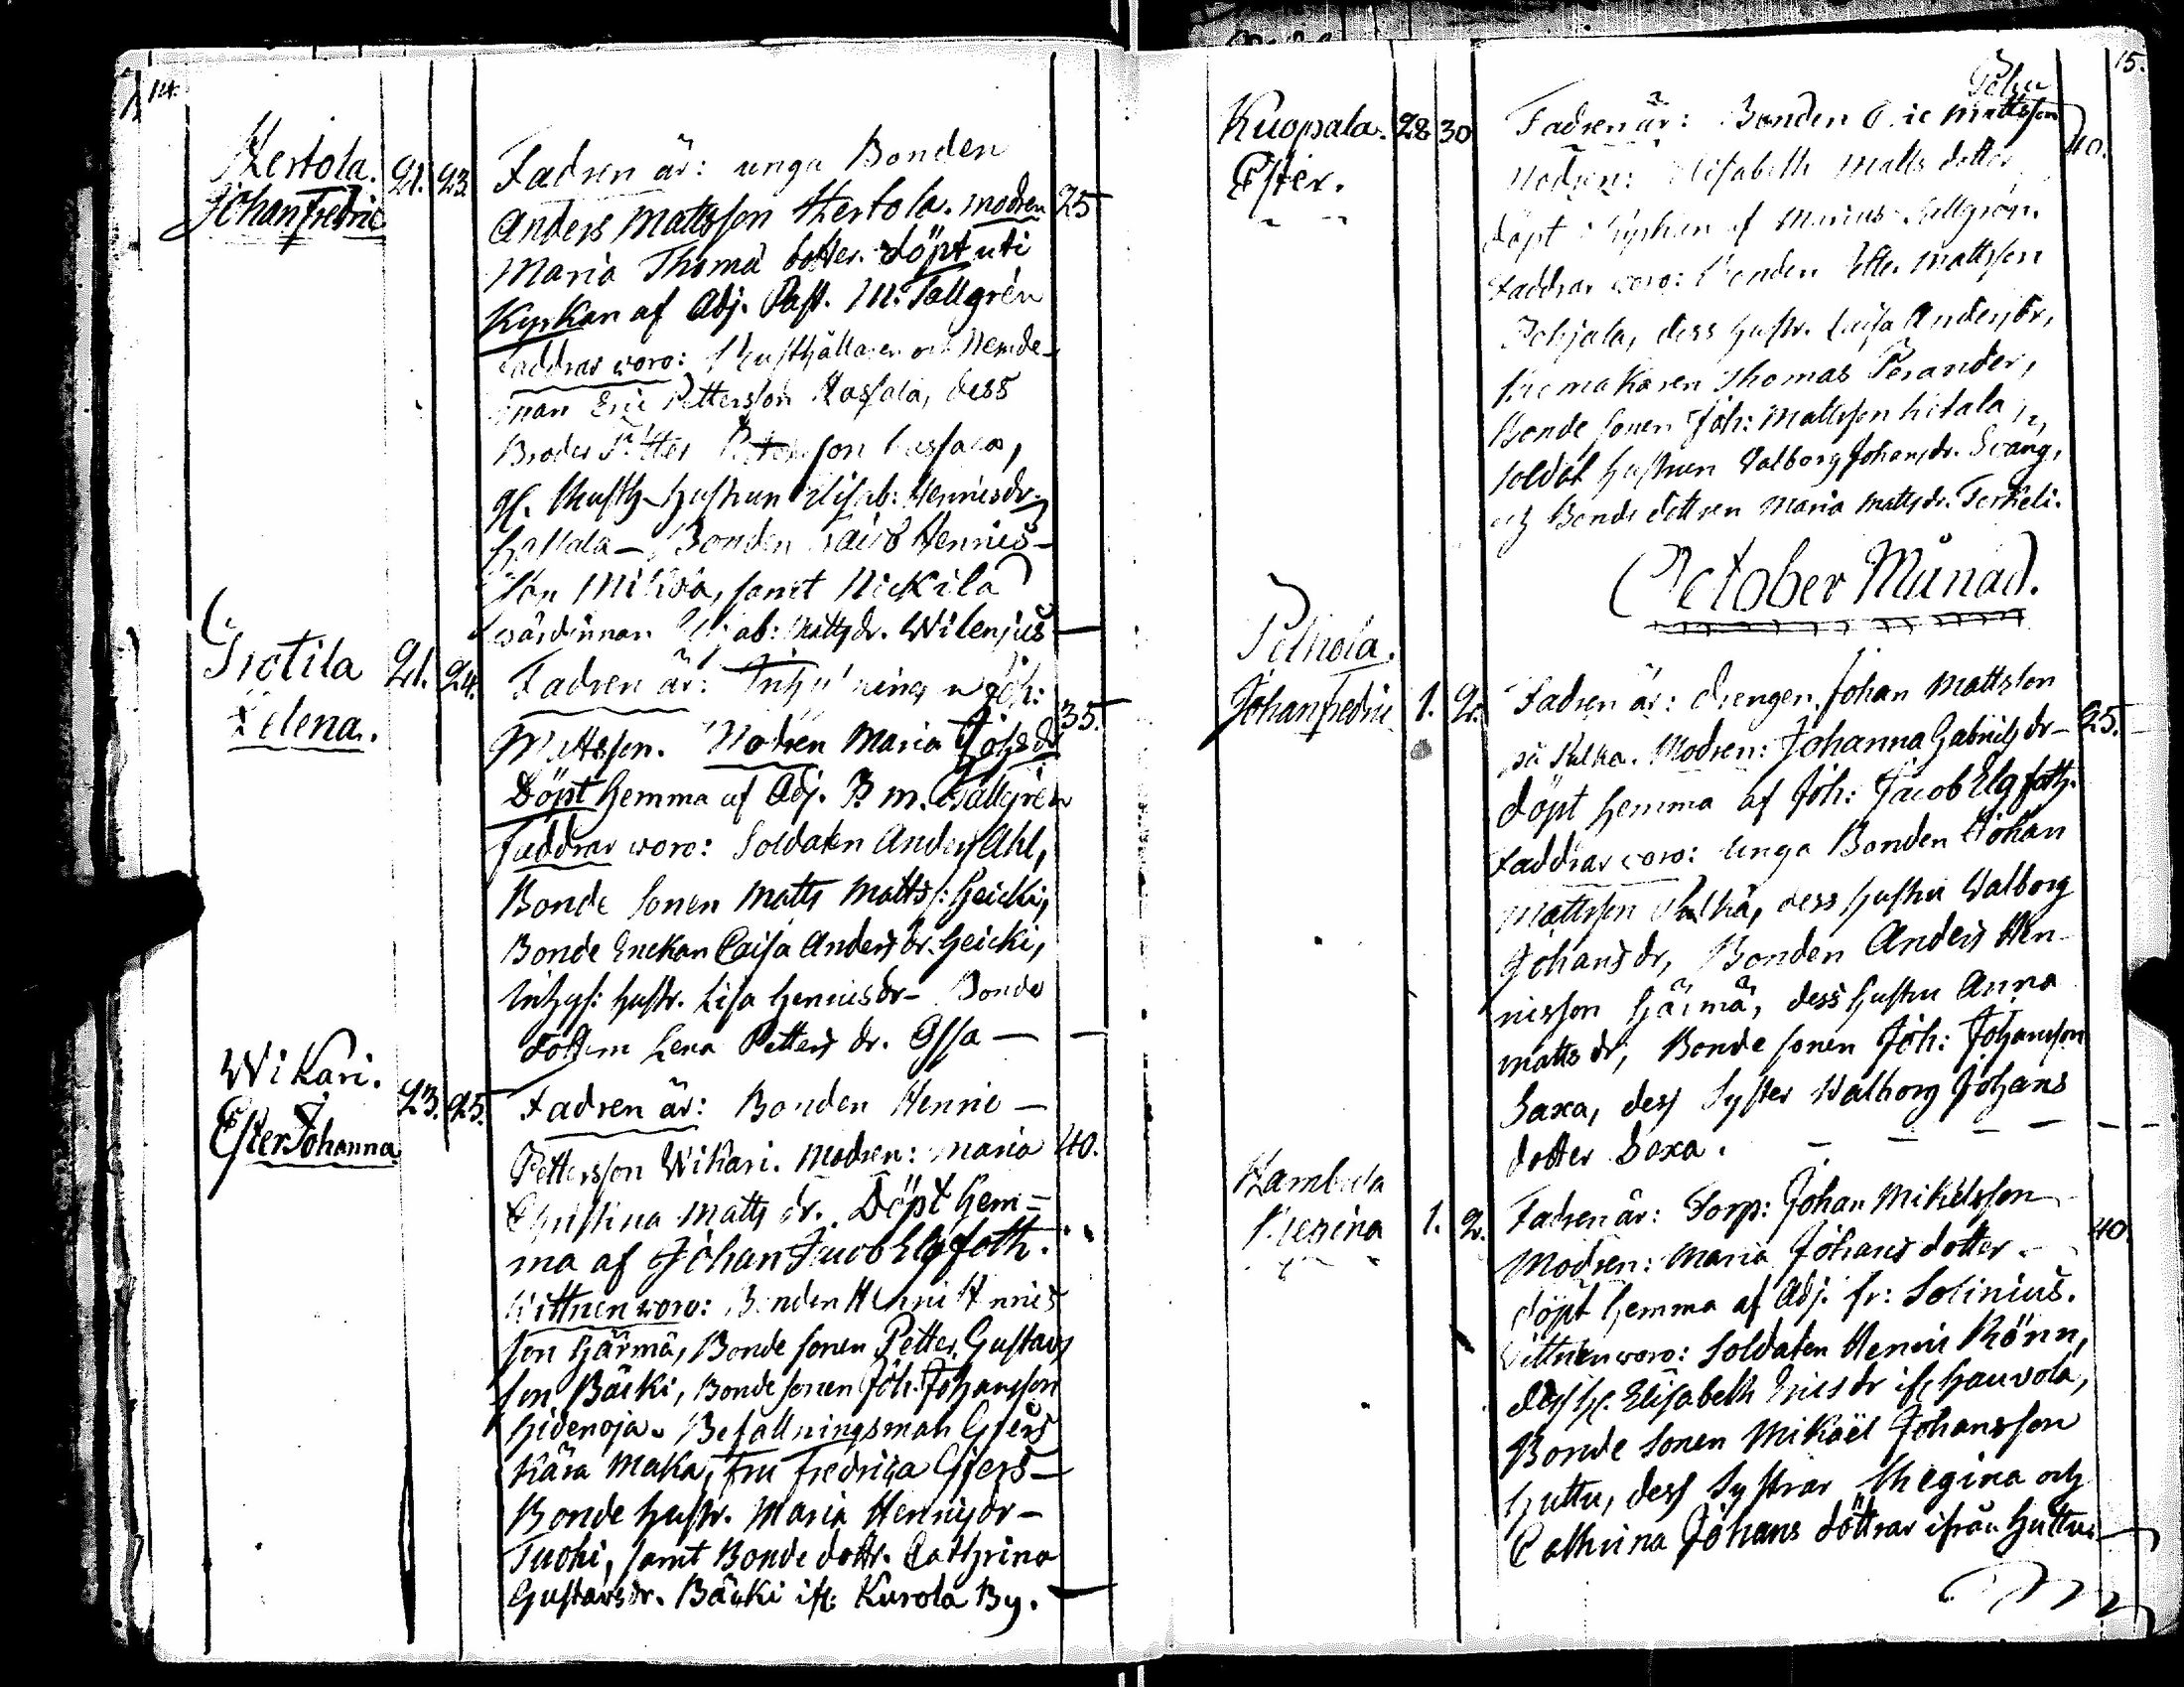 14.
Hertola. 21. 23. Fadren är: unga Bonden
Johan Fredric Anders Mattsson Hertola. modren 25
Maria Thoma dotter. döpt uti
Kyrkan af Adj. Past. M. Tallgrén
Faddrar woro: Rusthållaren och Nemde-
man Eric Pettersson Kassala, dess
Broder Petter Pettersson Kassala,
gl. Rusth. hustrun Elisab: Hennisdr.
Bonden Hennis-
son samt Nickila
wärdinnan Elisab: Mattsdr. Wilenius —
Isotila 21. 24. Fadren är: Joh:
Helena. Mattsson. Modren Maria Johsdr 35.
Döpt hemma af Adj. P. M. Tallgrén
Faddrar woro: Soldaten Anders Ahl,
Bonde sonen Matts Mattss: Heicki,
Bonde Enckan Caisa Andersdr. Heicki,
Inhys: hustr. Lisa Hennisdr- Bonde
dottern Lena Petters dr. Ossa —
Wikari. 23. 25. Fadren är: Bonden Henric —
Ester Johanna Pettersson Wikari. Modren: Maria 40.
Christina Matts dr. Döpt hem=
ma af Johan Jacob Elgfoth.
Wittnen woro: Bonden Henric Hennis
son Härmä, Bonde sonen Petter Gustavs
son Bäcki, Bonde sonen Joh. Johansson
Hidenoja. Befallningsman Gjers
Kära Maka, Fru Fredrica Gjers —
Bonde hustr. Maria Hennisdr —
Tuohi, samt Bonde dottr. Cathrina
Gustavsdr. Bäcki ifr: Kurola By. —
15.
Kuopala. 28 30 Fadren är: Bonden Eric Mattsson
Ester. Modren: Elisabeth Matts dotter 40.
döpt i Kyrkan af Marcus Tallgrén.
Faddrar woro: Bonden Mattsson
Pohjala, dess hustr. Caisa Andersdr,
Thomas Perander,
Bonde sonen Joh: Mattsson
soldat hustrun Valborg Johansdr. Svang,
och Bonde dottren Maria Mattsdr. Torkeli.
October Månad.
Pelkola.
Johan Fredric 1. 2. Fadren är: drengen Johan Mattsson
på Pelka. Modren: Johanna Gabrielsdr — 25.
döpt hemma af Joh: Jacob Elgfoth.
Faddrar woro: Unga Bonden Johan
Mattsson Pelka, dess hustru Walborg
Johansdr, Bonden Anders Hen-
nisson Härmä, dess hustru Anna
Mattsdr, Bonde sonen Joh: Johansson
Saxa, dess Syster Walborg Johans
dotter Saxa. — — — —
Kambala
Regina 1. 2. Fadren är: Torp: Johan Mikelsson
Modren: Maria Johans dotter — 40.
döpt hemma af Adj. fr: Solinius.
Wittnen woro: Soldaten Henric Rönn,
dess h. Elisabeth Ericsdr ifr Hauvola,
Bonde Sonen Mikaël Johansson
Huttu, dess Systrar Regina och
Cathrina Johans döttrar ifrån Huttu